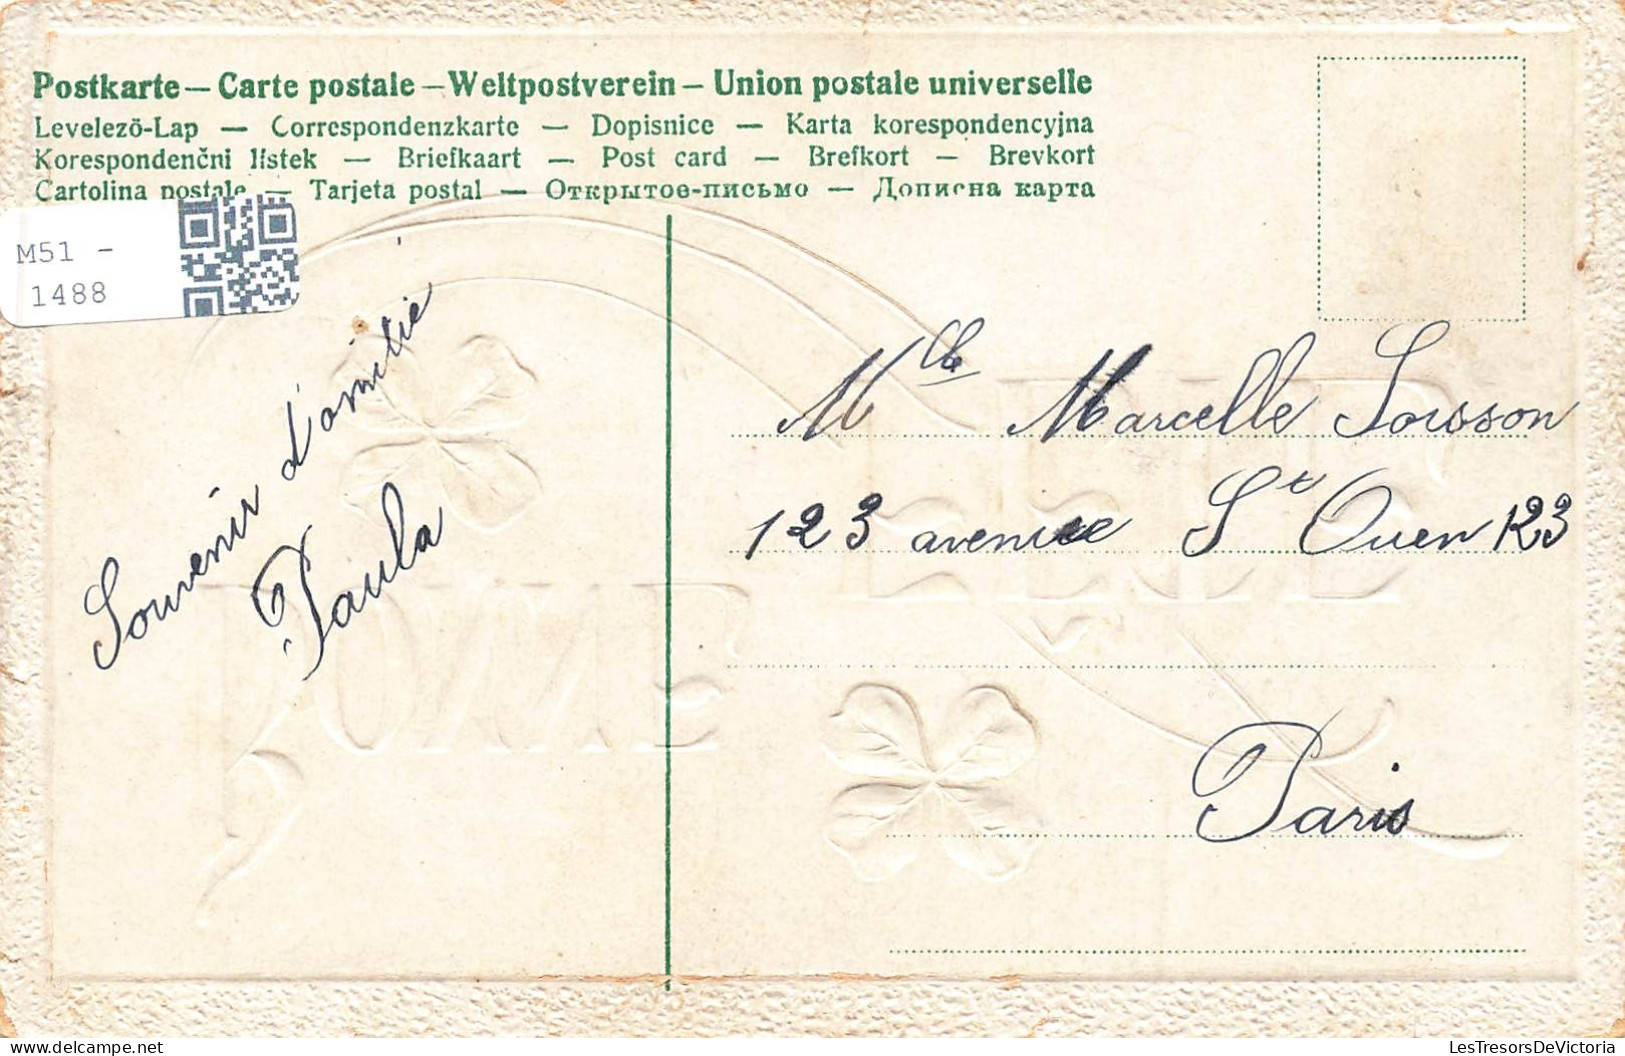 Postkarte — Carte postale — Weltpostverein — Union postale universelle
Levelezö-Lap — Correspondenzkarte — Dopisnice — Karta korespondencyjna
Korespondenčni lístek — Briefkaart — Post card — Brefkort — Brevkort
Cartolina postale — Tarjeta postal — Открытое-письмо — Дописна карта
M51 -
1488
Souvenir d'amitié
Paula
Mlle Marcelle
123 avenue St Ouen 123
Paris
BONNE
LesTresorsDeVictoria